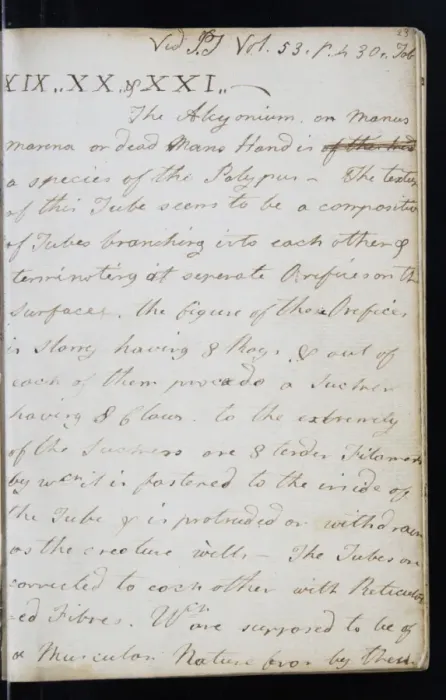 23
Vid P.T Vol. 53. p. 430. Tab
XIX,, XX,, & XXI,,
The Alcyonium. or Manus
marina or dead Mans Hand is
a species of the Polypus – The textur
of this Tube seems to be a composition
of Tubes branching into each other &
terminating at seperate Orifices on th
Surfaces. the figure of those Orefices
is Starry having 8 Rays & out of
each of them proceeds a Sucker
having 8 Claws. to the extremity
of the Suckers are 8 tender Filaments
by wch it is fastened to the inside of
the Tube & is protruded or withdrawn
as the creature wills – The Tubes are
connected to each other with Reticula
ed Fibres. Wch are supposed to be of
a Muscular Nature for by them